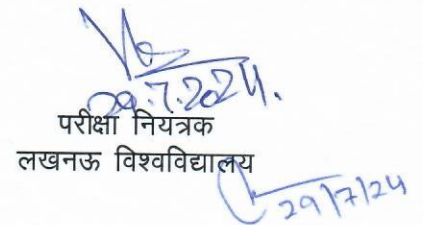 29.7.2024.
परीक्षा नियंत्रक
लखनऊ विश्वविद्यालय
29/7/24